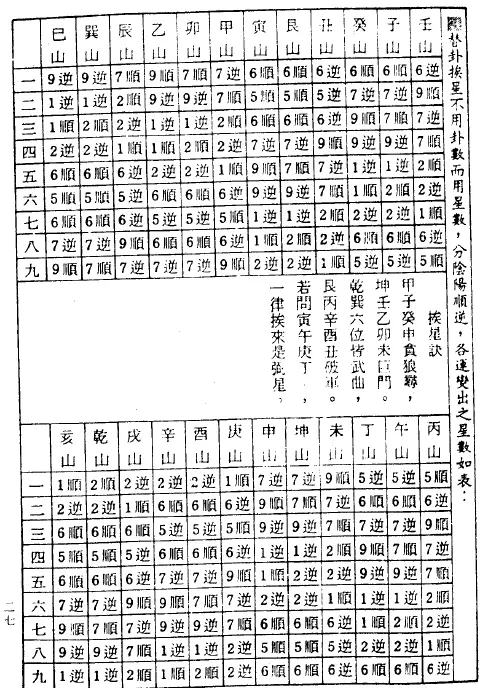 替卦挨星不用卦數而用星數，分陰陽順逆，各運變出之星數如表：
巳山 巽山 辰山 乙山 卯山 甲山 寅山 艮山 丑山 癸山 子山 壬山
一 9逆 9逆 7順 9順 7順 7逆 6順 6順 6逆 6順 6順 6逆
二 1逆 1逆 2順 9逆 9逆 7順 5順 5順 5逆 7逆 7逆 9順
三 1順 2順 2逆 1逆 1逆 2順 6順 6順 6逆 9順 7順 7逆
四 2逆 2逆 1順 1順 2順 2逆 7逆 7逆 9順 9逆 9逆 7順
五 6順 6順 6逆 2逆 2逆 1順 9順 7順 7逆 1逆 1逆 2順
六 5順 5順 5逆 6順 6順 6逆 9逆 9逆 7順 1順 2順 2逆
七 6順 6順 6逆 5逆 5逆 5順 1逆 1逆 2順 2逆 2逆 1順
八 7逆 7逆 9順 6順 6順 6逆 1順 2順 2逆 6順 6順 6逆
九 9順 7順 7逆 7逆 7逆 9順 2逆 2逆 1順 5逆 5逆 5順
挨星訣
甲子癸申貪狼尋，
坤壬乙卯未巨門。
乾巽六位皆武曲，
艮丙辛酉丑破軍。
若問寅午庚丁，
一律挨來是弼星。
亥山 乾山 戌山 辛山 酉山 庚山 申山 坤山 未山 丁山 午山 丙山
一 1順 2順 2逆 2逆 2逆 1順 7逆 7逆 9順 5逆 5逆 5順
二 2逆 2逆 1順 6順 6順 6逆 9順 7順 7逆 6順 6順 6逆
三 6順 6順 6逆 5逆 5逆 5順 9逆 9逆 7順 7逆 7逆 9順
四 5順 5順 5逆 6順 6順 6逆 1逆 1逆 2順 9順 7順 7逆
五 6順 6順 6逆 7逆 7逆 9順 1順 2逆 2逆 9逆 9逆 7順
六 7逆 7逆 9順 9順 7順 7逆 2逆 2逆 1順 1逆 1逆 2順
七 9順 7順 7逆 9逆 9逆 7順 6順 6順 6逆 1順 2順 2逆
八 9逆 9逆 7順 1逆 1逆 2順 5順 5順 5逆 2逆 2逆 1順
九 1逆 1逆 2順 1順 2順 2逆 6順 6順 6逆 6順 6順 6逆
二七